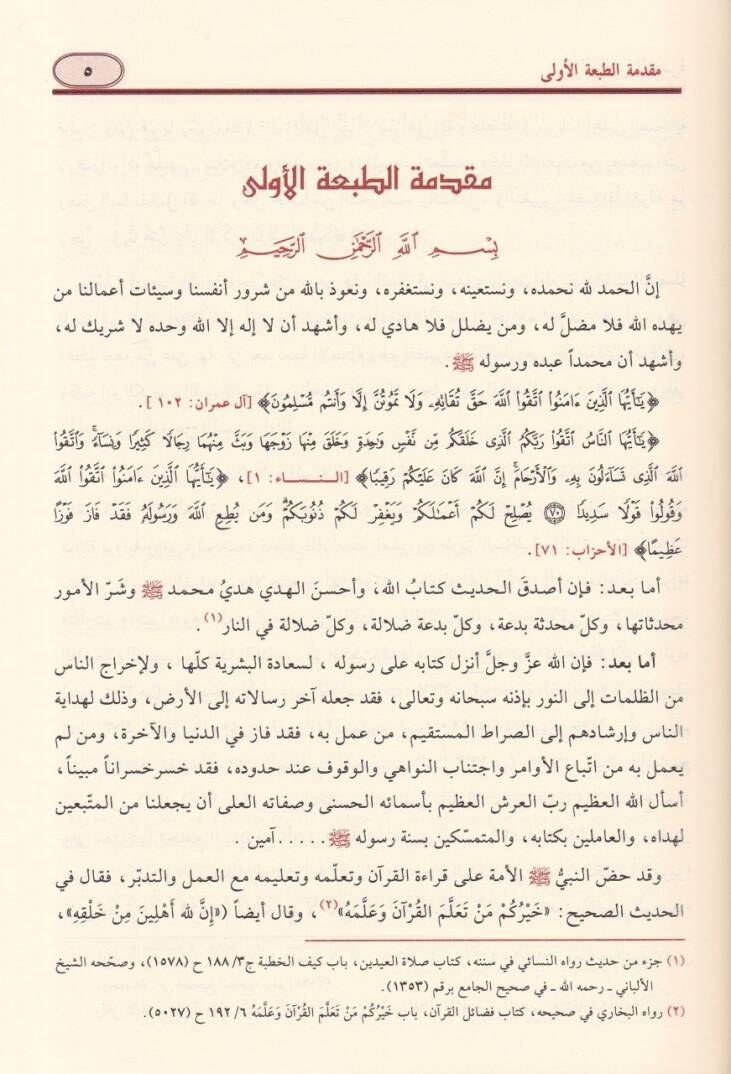 مقدمة الطبعة الأولى
٥
مقدمة الطبعة الأولى
بِسْمِ اللَّهِ الرَّحْمَٰنِ الرَّحِيمِ
إنَّ الحمد لله نحمده، ونستعينه، ونستغفره، ونعوذ بالله من شرور أنفسنا وسيئات أعمالنا من
يهده الله فلا مضلَّ له، ومن يضلل فلا هادي له، وأشهد أن لا إله إلا الله وحده لا شريك له،
وأشهد أن محمداً عبده ورسوله ﷺ.
﴿يَٰٓأَيُّهَا ٱلَّذِينَ ءَامَنُوا۟ ٱتَّقُوا۟ ٱللَّهَ حَقَّ تُقَاتِهِۦ وَلَا تَمُوتُنَّ إِلَّا وَأَنتُم مُّسْلِمُونَ﴾ [آل عمران: ١٠٢].
﴿يَٰٓأَيُّهَا ٱلنَّاسُ ٱتَّقُوا۟ رَبَّكُمُ ٱلَّذِى خَلَقَكُم مِّن نَّفْسٍ وَٰحِدَةٍ وَخَلَقَ مِنْهَا زَوْجَهَا وَبَثَّ مِنْهُمَا رِجَالًا كَثِيرًا وَنِسَآءً ۚ وَٱتَّقُوا۟
ٱللَّهَ ٱلَّذِى تَسَآءَلُونَ بِهِۦ وَٱلْأَرْحَامَ ۚ إِنَّ ٱللَّهَ كَانَ عَلَيْكُمْ رَقِيبًا﴾ [النساء: ١]، ﴿يَٰٓأَيُّهَا ٱلَّذِينَ ءَامَنُوا۟ ٱتَّقُوا۟ ٱللَّهَ
وَقُولُوا۟ قَوْلًا سَدِيدًا ۝٧٠ يُصْلِحْ لَكُمْ أَعْمَٰلَكُمْ وَيَغْفِرْ لَكُمْ ذُنُوبَكُمْ ۗ وَمَن يُطِعِ ٱللَّهَ وَرَسُولَهُۥ فَقَدْ فَازَ فَوْزًا
عَظِيمًا﴾ [الأحزاب: ٧١].
أما بعد: فإن أصدقَ الحديث كتابُ الله، وأحسنَ الهدي هديُ محمد ﷺ وشَرّ الأمور
محدثاتها، وكلّ محدثة بدعة، وكلّ بدعة ضلالة، وكلّ ضلالة في النار(١).
أما بعد: فإن الله عزَّ وجلَّ أنزل كتابه على رسوله ، لسعادة البشرية كلّها ، ولإخراج الناس
من الظلمات إلى النور بإذنه سبحانه وتعالى، فقد جعله آخر رسالاته إلى الأرض، وذلك لهداية
الناس وإرشادهم إلى الصراط المستقيم، من عمل به، فقد فاز في الدنيا والآخرة، ومن لم
يعمل به من اتّباع الأوامر واجتناب النواهي والوقوف عند حدوده، فقد خسرخسراناً مبيناً،
أسأل الله العظيم ربّ العرش العظيم بأسمائه الحسنى وصفاته العلى أن يجعلنا من المتّبعين
لهداه، والعاملين بكتابه، والمتمسّكين بسنة رسوله ﷺ.....آمين .
وقد حضّ النبيُّ ﷺ الأمة على قراءة القرآن وتعلّمه وتعليمه مع العمل والتدبّر، فقال في
الحديث الصحيح: «خَيْرُكُمْ مَنْ تَعَلَّمَ القُرْآنَ وَعَلَّمَهُ»(٢)، وقال أيضاً («إِنَّ لله أَهْلِينَ مِنْ خَلْقِهِ»،
(١) جزء من حديث رواه النسائي في سننه، كتاب صلاة العيدين، باب كيف الخطبة ج٣/ ١٨٨ ح (١٥٧٨)، وصحّحه الشيخ
الألباني ـ رحمه الله ـ في صحيح الجامع برقم (١٣٥٣).
(٢) رواه البخاري في صحيحه، كتاب فضائل القرآن، باب خَيْرُكُمْ مَنْ تَعَلَّمَ القُرْآنَ وَعَلَّمَهُ ٦/ ١٩٢ ح (٥٠٢٧).